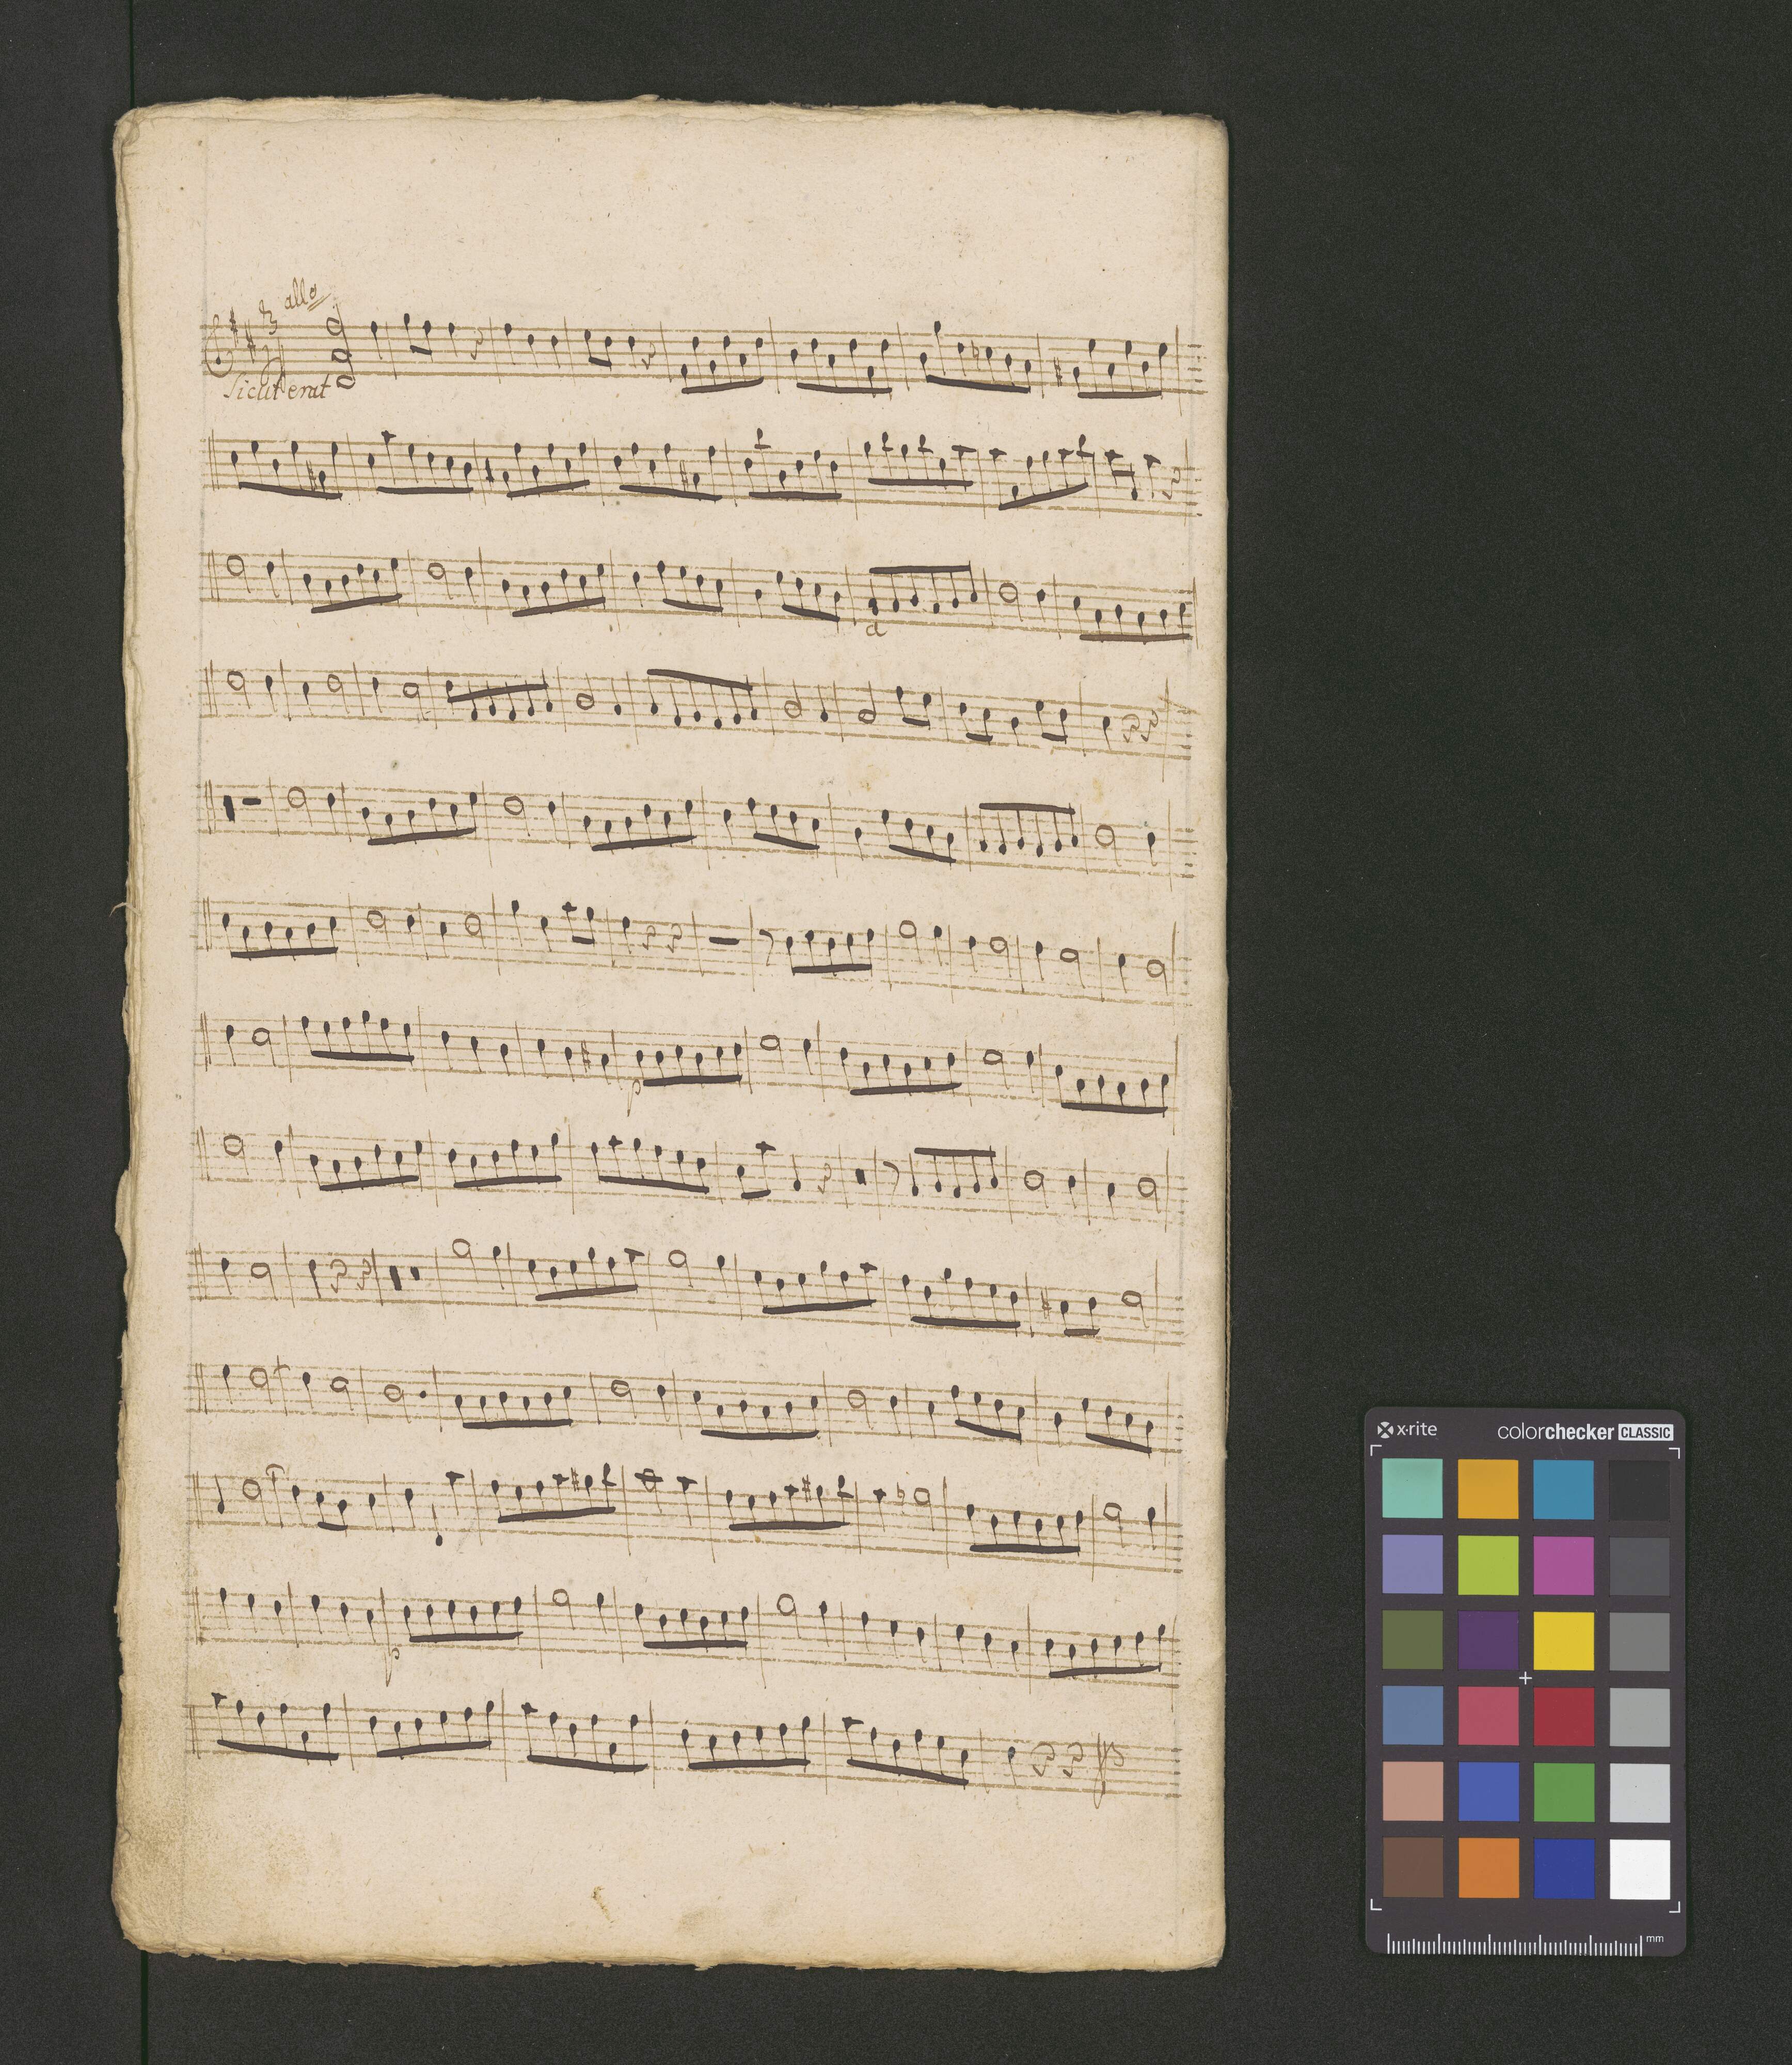 allo
Sicut erat
p
p
x·rite colorchecker CLASSIC
mm